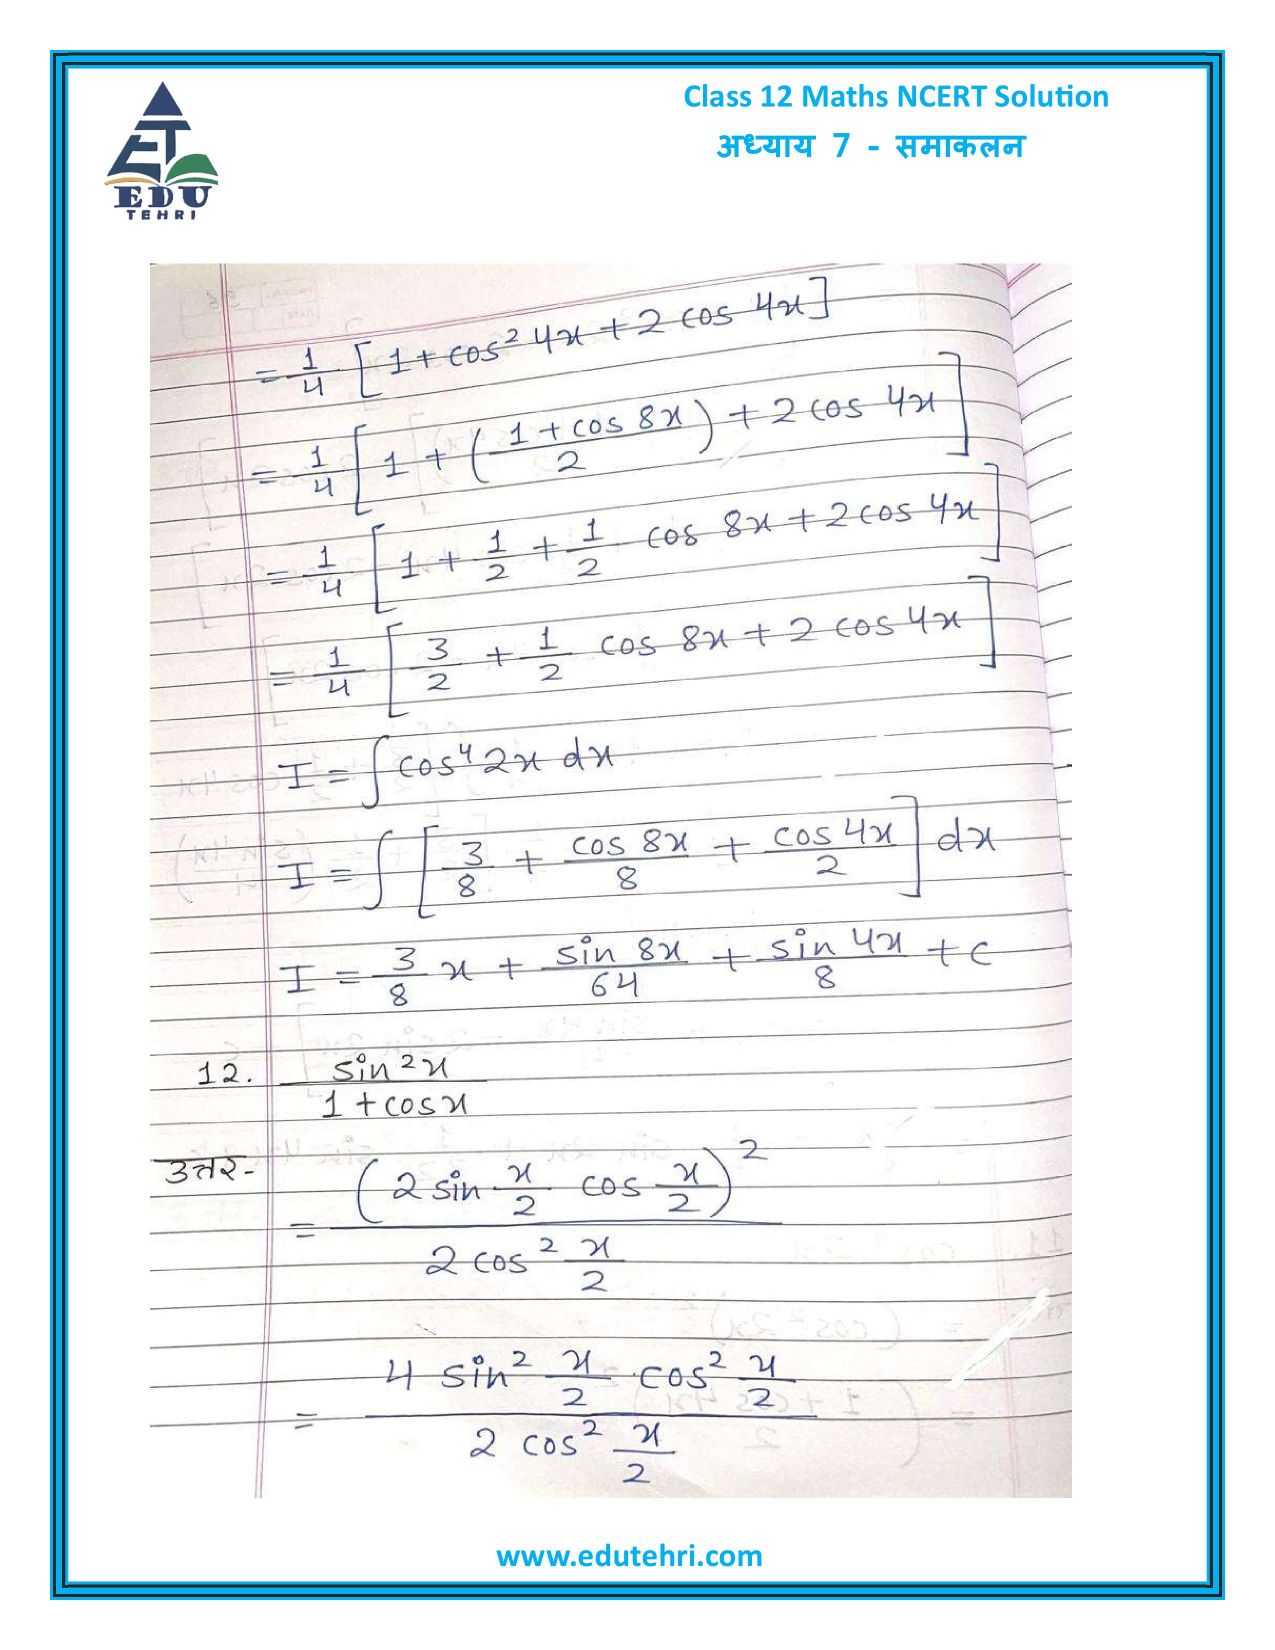 Class 12 Maths NCERT Solution
अध्याय 7 - समाकलन
EDU
TEHRI
= 1/4 [1 + cos² 4x + 2 cos 4x]
= 1/4 [1 + (1 + cos 8x / 2) + 2 cos 4x]
= 1/4 [1 + 1/2 + 1/2 cos 8x + 2 cos 4x]
= 1/4 [3/2 + 1/2 cos 8x + 2 cos 4x]
I = ∫ cos⁴ 2x dx
I = ∫ [3/8 + cos 8x / 8 + cos 4x / 2] dx
I = 3/8 x + sin 8x / 64 + sin 4x / 8 + c
12. sin² x / 1 + cos x
उत्तर-
= (2 sin x/2 cos x/2)² / 2 cos² x/2
= 4 sin² x/2 · cos² x/2 / 2 cos² x/2
www.edutehri.com